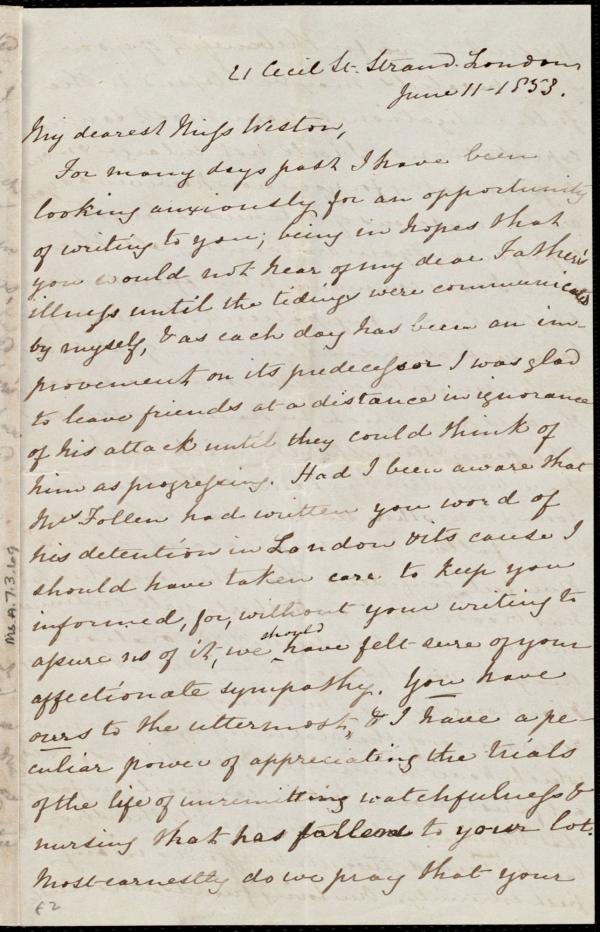 21 Cecil St. Strand. London,
June 11 - 1853.
My dearest Miss Weston,
For many days past I have been
looking anxiously for an opportunity
of writing to you; being in hopes that
you would not hear of my dear Father's
illness until the tidings were communicated
by myself, & as each day has been an im-
provement on its predecessor I was glad
to leave friends at a distance in ignorance
of his attack until they could think of
him as progressing. Had I been aware that
Mrs Follen had written you word of
his detention in London & its cause I
should have taken care to keep you
informed, for, without your writing to
assure us of it, we should have felt sure of your
affectionate sympathy. You have
ours to the uttermost, & I have a pe-
culiar power of appreciating the trials
of the life of unremitting watchfulness &
nursing that has fallen to your lot.
Most earnestly do we pray that your
Ms. A. 7. 3. 609